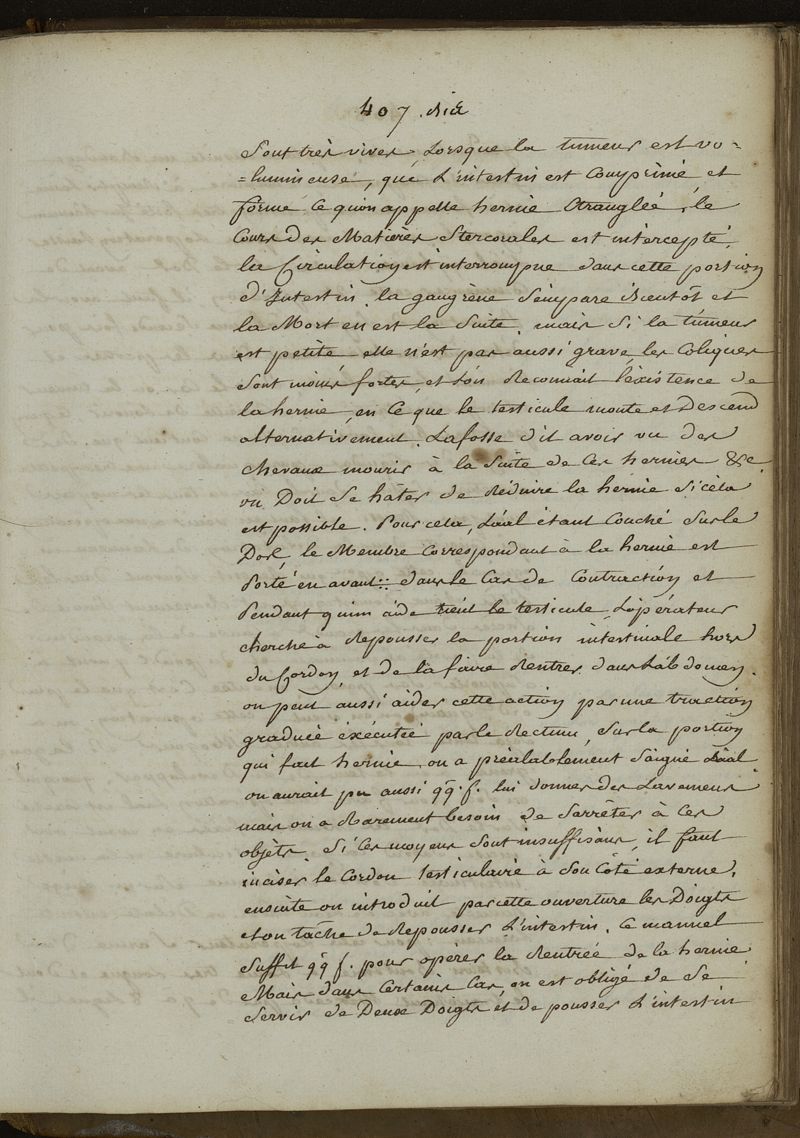 407.
Sont très vives, Lorsque la tumeur est vo=
=lumineuse, que L'intestin est Comprimé et
forme Ce qu'on appelle hernie Etranglée, le
Cours des Matières Stercorales est intercepté,
la Circulation est interrompue dans cette portion
d'Intestin. la gangrène S'empare Bientôt et
la Mort en est la Suite. mais Si la tumeur
est petite elle n'est pas aussi grave, les Coliques
Sont moins fortes, et L'on Reconnait l'éxistence de
la hernie, en Ce que le testicule monte et Descend
alternativement. Lafosse dit avoir vu des
chevaux mourir à la Suite de Ces hernies &c.
on Doit Se hâter de Réduire la hernie Si cela
est possible. Pour cela, L'aal étant Couché Sur le
Dos, le Membre Correspondant à la hernie est
Porté en avant :: dans le Cas de Contraction et
Pendant qu'un aide tient le testicule, L'opérateur
cherche à Repousser la portion intestinale hors
du Cordon, et de la faire Rentrer dans L'abdomen.
on peut aussi aider cette action par une traction
graduée éxécutée par le Rectum, Sur la portion
qui fait hernie, on a préalablement Saigné L'aal
on aurait pu aussi qq. f. lui donner des Lavemens
mais on a Rarement besoin de S'arrêter à Ces
objets. Si Ces moyens Sont insuffisans, il faut
inciser le Cordon testiculaire à Son Côté externe,
ensuite on introduit par cette ouverture les Doigts
et on tache de Repousser L'intestin. Ce manuel
Suffit qq f. pour opérer la Rentrée de la hernie
Mais dans Certains Cas, on est obligé de Se
Servir de Deux Doigts et de pousser L'intestin